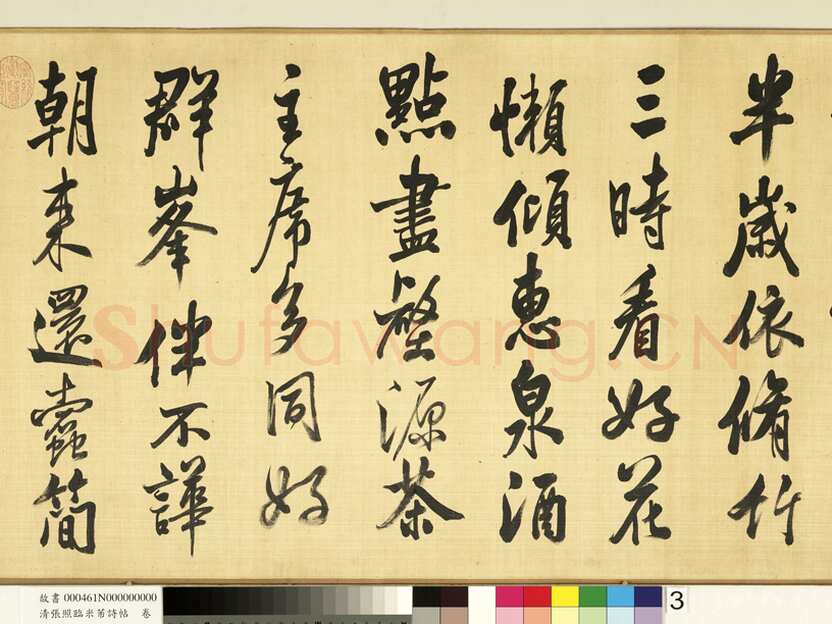 半歲依脩竹
三時看好花
懶傾惠泉酒
點盡壑源茶
主席多同好
群峯伴不譁
朝来還蠹簡
shufawang.CN
故書 000461N000000000
清張照臨米芾詩帖 卷
3